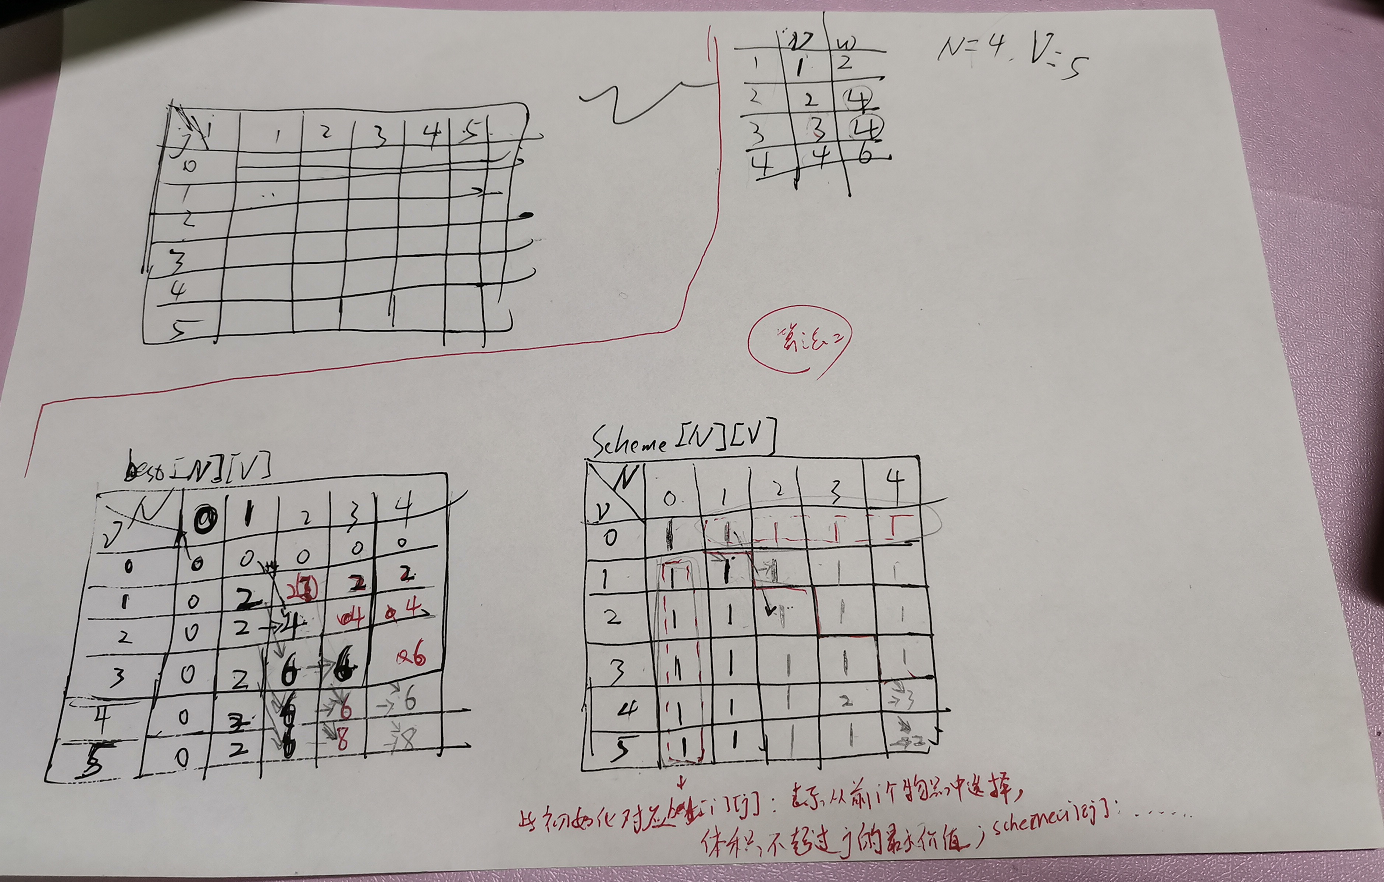 v w
1 1 2
2 2 4
3 3 4
4 4 6
N=4. V=5
j i 1 2 3 4 5
0
1
2
3
4
5
算法二
best[N][V]
V N 0 1 2 3 4
0 0 0 0 0 0
1 0 2 2 2 2
2 0 2 4 4 4
3 0 2 6 6 6
4 0 2 6 6 6
5 0 2 6 8 8
Scheme[N][V]
V N 0 1 2 3 4
0 1 1 1 1 1
1 1 1 1 1 1
2 1 1 1 1 1
3 1 1 1 1 1
4 1 1 1 2 3
5 1 1 1 1 2
此初始化对应best[i][j]: 表示从前i个物品中选择,
体积不超过j的最大价值; scheme[i][j]: ......